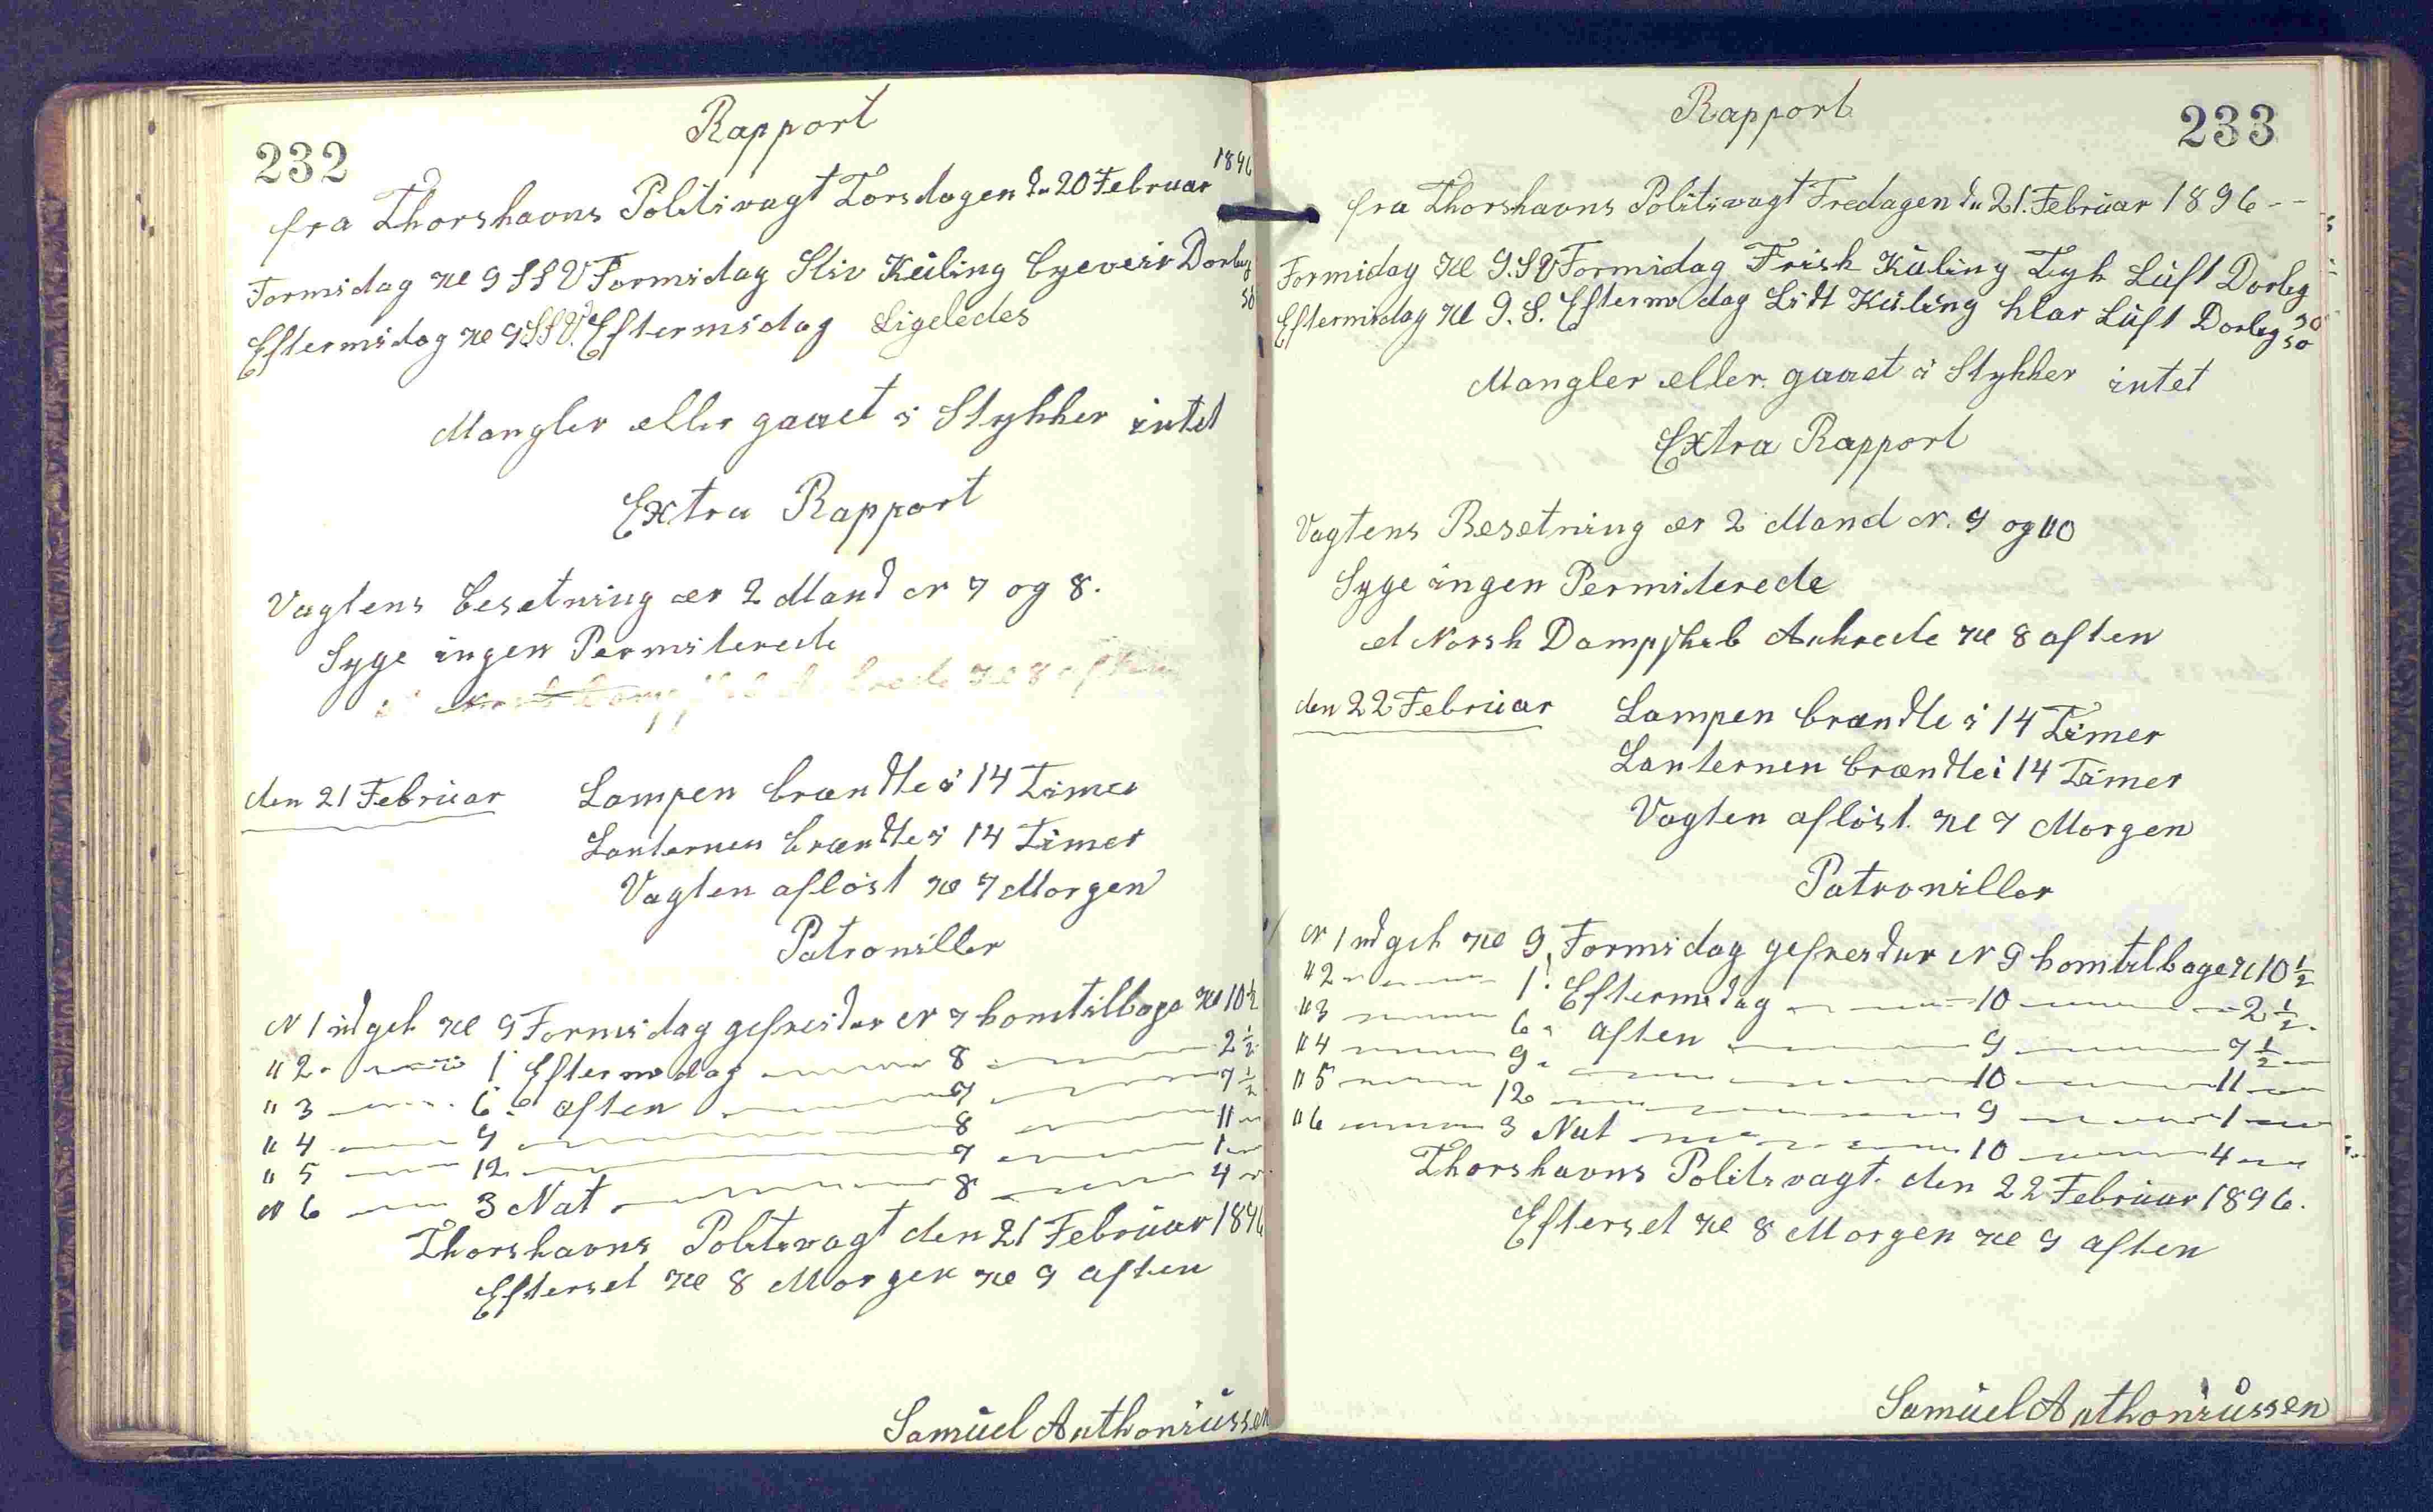 232
Rapport
fra Thorshavns Politivagt Torsdagen dn 20 Februar 1896
Formidag Kl 9 SSV Formidag Stiv Kuling byeveir Dorleg
Eftermidag Kl 9 SSV. Eftermidag Ligeledes 50
Mangler eller gaaet i Stykker intet
Extra Rapport
Vagtens besetning er 2 Mand N 7 og 8.
Syge ingen Permiterede
Kl 8 aften
den 21 Februar Lampen brændte i 14 Timer
Lanternen brændte i 14 Timer
Vagten afløst Kl 7 Morgen
Patroniller
N 1 udgik Kl 9 Formidag gefreidur N 7 komtilbage Kl 10 1/2
" 2 - 1 Eftermidag 8 2 1/2
" 3 6 aften 7 7 1/2
" 4 9 8 11
" 5 12 7 1
N 6 3 Nat 8 4
Thorshavns Politivagt den 21 Februar 1896
Efterset Kl 8 Morgen Kl 9 aften
Samuel Anthoniussen
233
Rapport
fra Thorshavns Politivagt Fredagen dn 21. Februar 1896 - -
Formidag Kl 9. SV Formidag Frisk Kuling Tyk Luft Dorleg 30
Eftermidag Kl 9. S. Eftermidag Lidt Kuling klar Luft Dorleg 50
Mangler eller gaaet i Stykker intet
Extra Rapport
Vagtens Besetning er 2 Mand N. 9 og 10
Syge ingen Permiterede
et Norsk Dampskib Ankrede Kl 8 aften
den 22 Februar Lampen brændte i 14 Timer
Lanternen brændte i 14 Timer
Vagten afløst Kl 7 Morgen
Patroniller
N 1 udgik Kl 9 Formidag gefreidur N 9 komtilbage Kl 10 1/2
" 2 1. Eftermidag 10 2 1/2
" 3 6 aften 9 7 1/2
" 4 9 10 11
" 5 12 9 1
" 6 3 Nat 10 4
Thorshavns Politivagt. den 22 Februar 1896.
Efterset Kl 8 Morgen Kl 9 aften
Samuel Anthoniussen